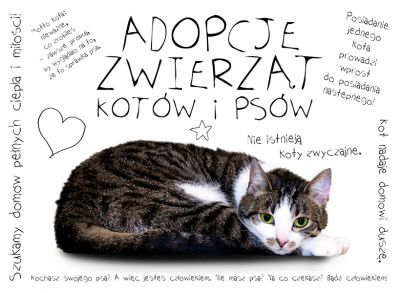 "Motto kota:
nieważne,
co zrobiłeś -
- zawsze próbuj
by wyglądało na to,
że to sprawka psa.
ADOPCJE
ZWIERZĄT
KOTÓW i PSÓW
Posiadanie
jednego
kota
prowadzi
wprost
do posiadania
następnego!
Nie istnieją
koty zwyczajne.
Szukamy domów pełnych ciepła i miłości!
Kot nadaje domowi duszę.
Kochasz swojego psa? A więc jesteś człowiekiem. Nie masz psa? Na co czekasz? Bądź człowiekiem!